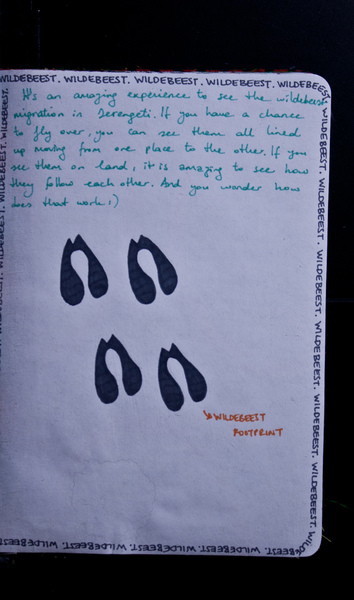 WILDEBEEST. WILDEBEEST. WILDEBEEST. WILDEBEEST. WILDEBEEST.
It's an amazing experience to see the wildebeest
migration in Serengeti. If you have a chance
to fly over, you can see them all lined
up moving from one place to the other. If you
see them on land, it is amazing to see how
they follow each other. And you wonder how
does that work:)
WILDEBEEST
FOOTPRINT
WILDEBEEST. WILDEBEEST. WILDEBEEST. WILDEBEEST. WILDEBEEST. WILDEBEEST.
WILDEBEEST. WILDEBEEST. WILDEBEEST. WILDEBEEST.